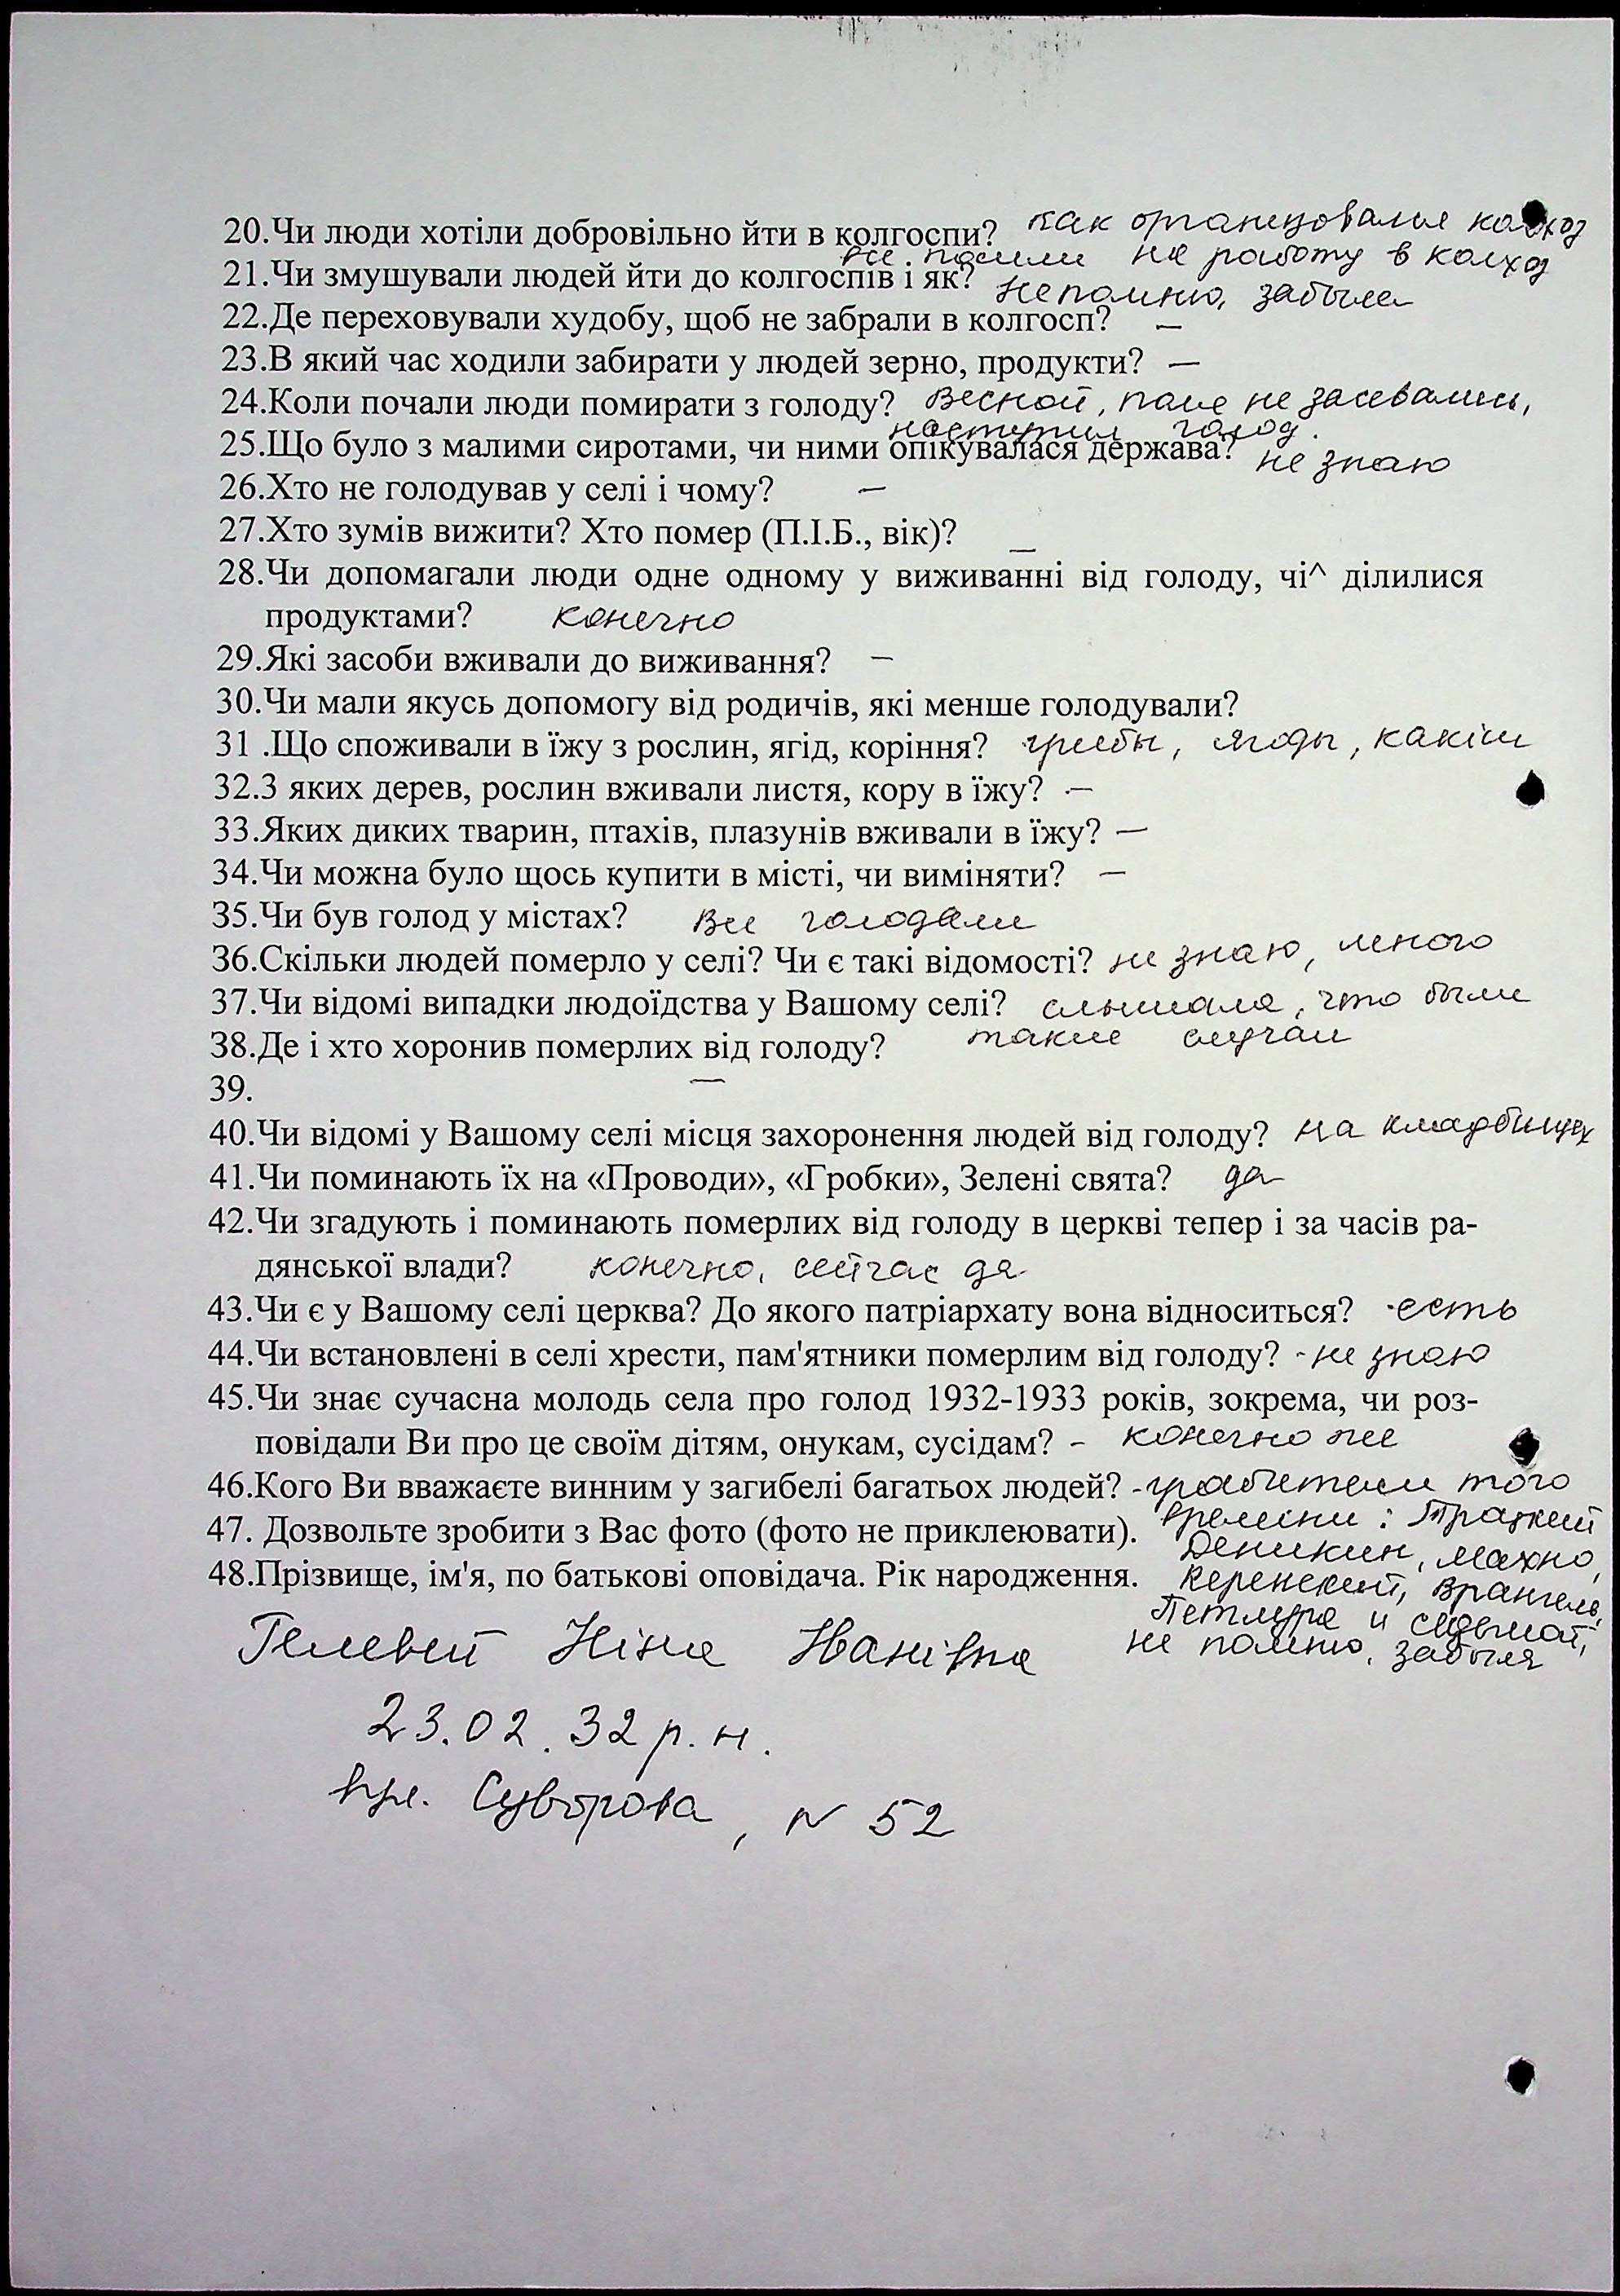 20.Чи люди хотіли добровільно йти в колгоспи? как организовался колхоз
все пошли на работу в колхоз
21.Чи змушували людей йти до колгоспів і як? не помню, забыла
22.Де переховували худобу, щоб не забрали в колгосп? —
23.В який час ходили забирати у людей зерно, продукти? —
24.Коли почали люди помирати з голоду? Весной, поле не засевались,
наступил голод.
25.Що було з малими сиротами, чи ними опікувалася держава? не знаю
26.Хто не голодував у селі і чому? —
27.Хто зумів вижити? Хто помер (П.І.Б., вік)? —
28.Чи допомагали люди одне одному у виживанні від голоду, чі^ ділилися
продуктами? конечно
29.Які засоби вживали до виживання? —
30.Чи мали якусь допомогу від родичів, які менше голодували?
31 .Що споживали в їжу з рослин, ягід, коріння? грибы, ягоды,
32.З яких дерев, рослин вживали листя, кору в їжу? —
33.Яких диких тварин, птахів, плазунів вживали в їжу? —
34.Чи можна було щось купити в місті, чи виміняти? —
35.Чи був голод у містах? Все голодали
36.Скільки людей померло у селі? Чи є такі відомості? не знаю, много
37.Чи відомі випадки людоїдства у Вашому селі? слышала, что были
такие случаи
38.Де і хто хоронив померлих від голоду?
39. —
40.Чи відомі у Вашому селі місця захоронення людей від голоду? на кладбищах
41.Чи поминають їх на «Проводи», «Гробки», Зелені свята? да
42.Чи згадують і поминають померлих від голоду в церкві тепер і за часів ра-
дянської влади? конечно, сейчас да
43.Чи є у Вашому селі церква? До якого патріархату вона відноситься? есть
44.Чи встановлені в селі хрести, пам'ятники померлим від голоду? - не знаю
45.Чи знає сучасна молодь села про голод 1932-1933 років, зокрема, чи роз-
повідали Ви про це своїм дітям, онукам, сусідам? - конечно же
46.Кого Ви вважаєте винним у загибелі багатьох людей? - грабители того
времени: Троцкий
47. Дозвольте зробити з Вас фото (фото не приклеювати).
Деникин, Махно,
48.Прізвище, ім'я, по батькові оповідача. Рік народження.
Керенский, Врангель,
Петлюра и седьмой,
не помню, забыла
Гелевей Ніна Іванівна
23.02.32 р.н.
Суворова, N 52